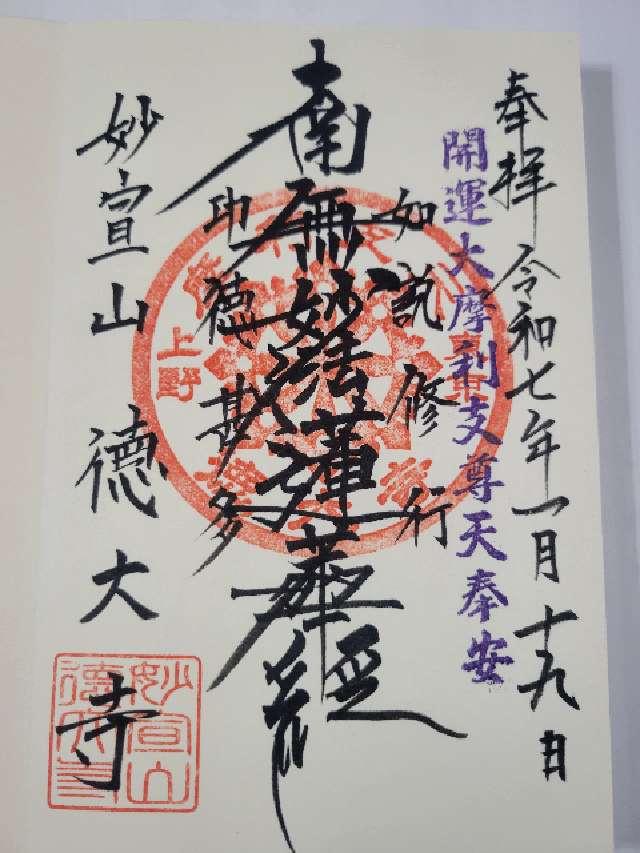 奉拝 令和七年一月十九日
開運大摩利支尊天奉安
如説修行
南無妙法蓮華経
功徳甚多
上野
妙宣山 徳大寺
妙宣山
徳大寺